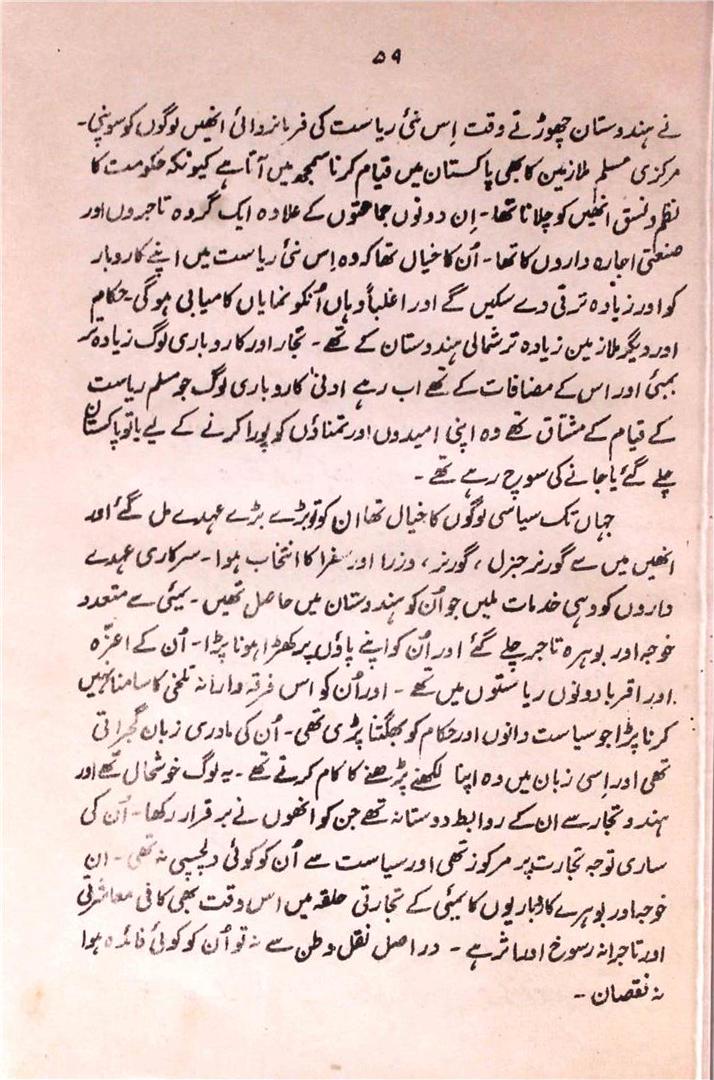 ۵۹
نے ہندوستان چھوڑتے وقت اِس نئی ریاست کی فرمانروائی انھیں لوگوں کو سونپی۔
مرکزی مسلم ملازمین کا بھی پاکستان میں قیام کرنا سمجھ میں آتا ہے کیونکہ حکومت کا
نظم و نسق انھیں کو چلانا تھا۔ اِن دونوں جماعتوں کے علاوہ ایک گروہ تاجروں اور
صنعتی اجارہ داروں کا تھا۔ اُن کا خیال تھا کہ وہ اِس نئی ریاست میں اپنے کاروبار
کو اور زیادہ ترقی دے سکیں گے اور اغلباً وہاں اُنکو نمایاں کامیابی ہوگی۔ حکام
اور دیگر ملازمین زیادہ تر شمالی ہندوستان کے تھے۔ تجار اور کاروباری لوگ زیادہ تر
بمبئی اور اس کے مضافات کے تھے اب رہے ادنیٰ کاروباری لوگ جو مسلم ریاست
کے قیام کے مشتاق تھے وہ اپنی امیدوں اور تمناؤں کو پورا کرنے کے لیے یا تو پاکستان
چلے گئے یا جانے کی سوچ رہے تھے۔
جہاں تک سیاسی لوگوں کا خیال تھا ان کو تو بڑے بڑے عہدے مل گئے اور
انھیں میں سے گورنر جنرل ، گورنر ، وزرا اور سفرا کا انتخاب ہوا۔ سرکاری عہدے
داروں کو وہی خدمات ملیں جو اُن کو ہندوستان میں حاصل تھیں۔ بمبئی سے متعدد
خوجہ اور بوہرہ تاجر چلے گئے اور اُن کو اپنے پاؤں پر کھڑا ہونا پڑا۔ اُن کے اعزّہ
اور اقربا دونوں ریاستوں میں تھے۔ اور اُن کو اس فرقہ وارانہ تلخی کا سامنا نہیں
کرنا پڑا جو سیاست دانوں اور حکام کو بھگتنا پڑی تھی۔ اُن کی مادری زبان گجراتی
تھی اور اِسی زبان میں وہ اپنا لکھنے پڑھنے کا کام کرتے تھے۔ یہ لوگ خوشحال تھے اور
ہندو تجار سے ان کے روابط دوستانہ تھے جن کو انھوں نے برقرار رکھا۔ اُن کی
ساری توجہ تجارت پر مرکوز تھی اور سیاست سے اُن کو کوئی دلچسپی نہ تھی۔ ان
خوجہ اور بوہرے کاروباریوں کا بمبئی کے تجارتی حلقہ میں اس وقت بھی کافی معاشرتی
اور تاجرانہ رسوخ اور اثر ہے۔ در اصل نقل وطن سے نہ تو اُن کو کوئی فائدہ ہوا
نہ نقصان ۔